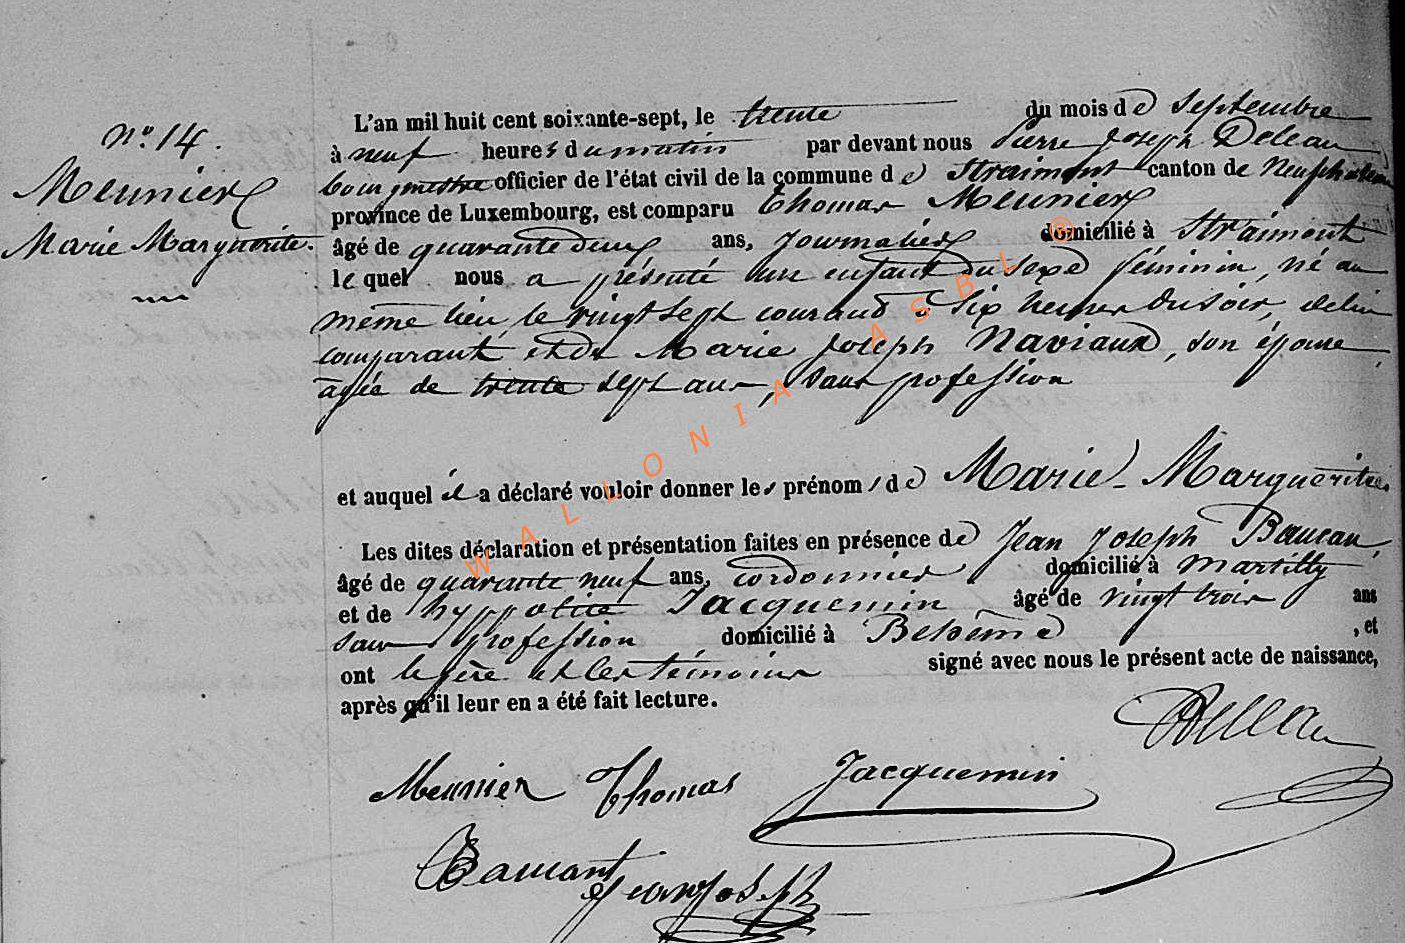 N° 14.
Meunier
Marie Marguerite.
L'an mil huit cent soixante-sept, le trente du mois de Septembre
à neuf heures du matin par devant nous Pierre Joseph Deleau
bourgmestre officier de l'état civil de la commune de Straimont canton de Neufchâteau
province de Luxembourg, est comparu Thomas Meunier
âgé de quarante deux ans, Journalier domicilié à Straimont
lequel nous a présenté un enfant du sexe féminin, né au
même lieu le vingt sept courant à six heures du soir, de lui
comparant et de Marie Joseph Naviaux, son épouse,
agée de trente sept ans, sans profession
et auquel il a déclaré vouloir donner les prénoms de Marie-Marguerite.
Les dites déclaration et présentation faites en présence de Jean Joseph Baucan,
âgé de quarante neuf ans, cordonnier domicilié à Martilly
et de hyppolite Jacquemin âgé de vingt trois ans
sans profession domicilié à Behême, et
ont le père et les témoins signé avec nous le présent acte de naissance,
après qu'il leur en a été fait lecture.
Deleau
Meunier Thomas Jacquemin
Baucant
Jean Joseph
WALLONIA ASBL ©